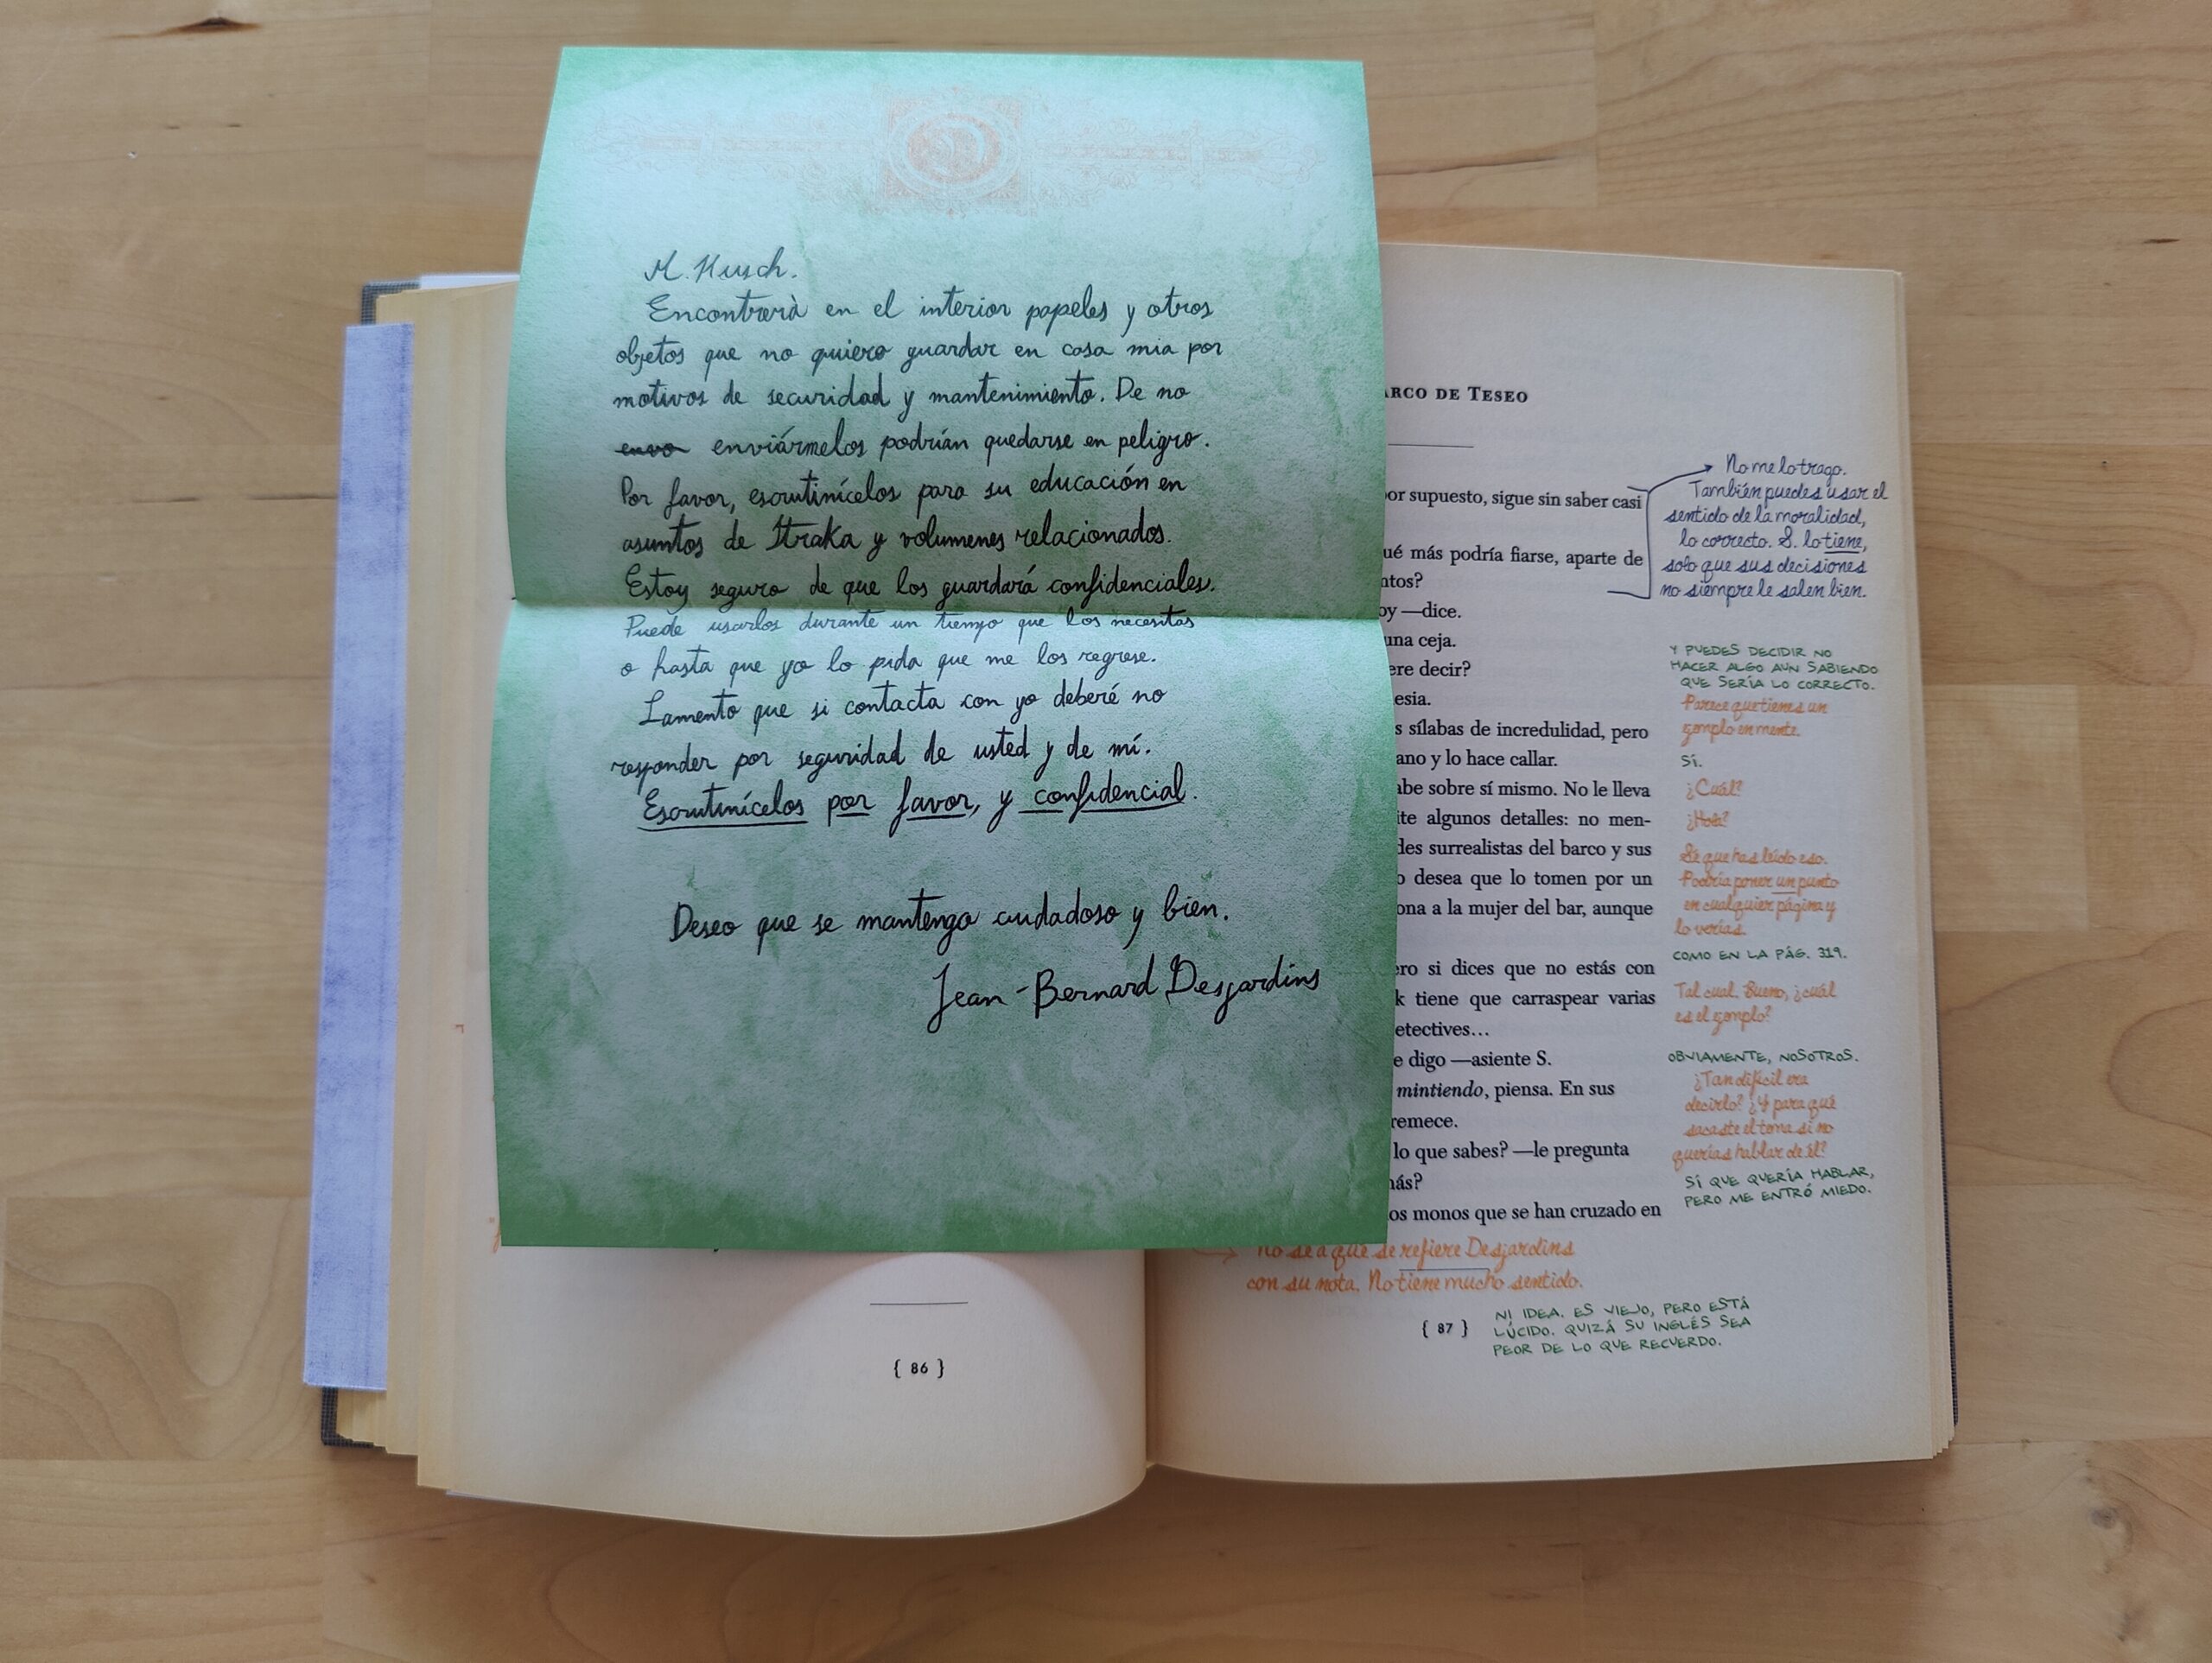 M. Husch.
Encontrerà en el interior papeles y otros
objetos que no quiero guardar en casa mia por
motivos de securidad y mantenimiento. De no
enviármelos podrían quedarse en peligro.
Por favor, escrutinícelos para su educación en
asuntos de Straka y volumenes relacionados.
Estoy seguro de que los guardará confidenciales.
Puede usarlos durante un tiempo que los necesitas
o hasta que yo lo pida que me los regrese.
Lamento que si contacta con yo deberé no
responder por seguridad de usted y de mí.
Escrutinícelos por favor, y confidencial.
Deseo que se mantenga cuidadoso y bien.
Jean-Bernard Desjardins
{ 86 }
ARCO DE TESEO
por supuesto, sigue sin saber casi
qué más podría fiarse, aparte de
ntos?
oy —dice.
una ceja.
ere decir?
esia.
s sílabas de incredulidad, pero
ano y lo hace callar.
abe sobre sí mismo. No le lleva
ite algunos detalles: no men-
des surrealistas del barco y sus
o desea que lo tomen por un
ona a la mujer del bar, aunque
ero si dices que no estás con
k tiene que carraspear varias
etectives…
e digo —asiente S.
mintiendo, piensa. En sus
remece.
lo que sabes? —le pregunta
más?
os monos que se han cruzado en
No me lo trago.
También puedes usar el
sentido de la moralidad,
lo correcto. S. lo tiene,
solo que sus decisiones
no siempre le salen bien.
Y PUEDES DECIDIR NO
HACER ALGO AUN SABIENDO
QUE SERÍA LO CORRECTO.
Parece que tienes un
ejemplo en mente.
SÍ.
¿Cuál?
¿Hola?
Sé que has leído eso.
Podría poner un punto
en cualquier página y
lo verías.
COMO EN LA PÁG. 319.
Tal cual. Bueno, ¿cuál
es el ejemplo?
OBVIAMENTE, NOSOTROS.
¿Tan difícil era
decirlo? ¿Y para qué
sacaste el tema si no
querías hablar de él?
SÍ QUE QUERÍA HABLAR,
PERO ME ENTRÓ MIEDO.
No sé a qué se refiere Desjardins
con su nota. No tiene mucho sentido.
NI IDEA. ES VIEJO, PERO ESTÁ
LÚCIDO. QUIZÁ SU INGLÉS SEA
PEOR DE LO QUE RECUERDO.
{ 87 }